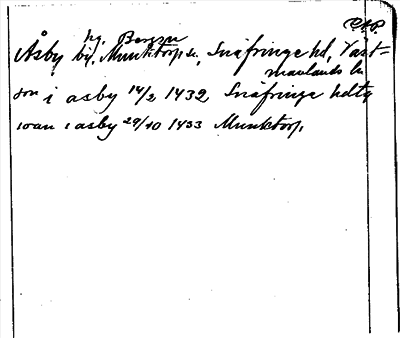 C.A.P.
hg. Bergsn
Åsby by, Munktorp sn, Snäfringe hd, Väst-
manlands ln
son i asby 14/2 1432 Snäfringe hdtg
ioan i asby 29/10 1433 Munktorp,